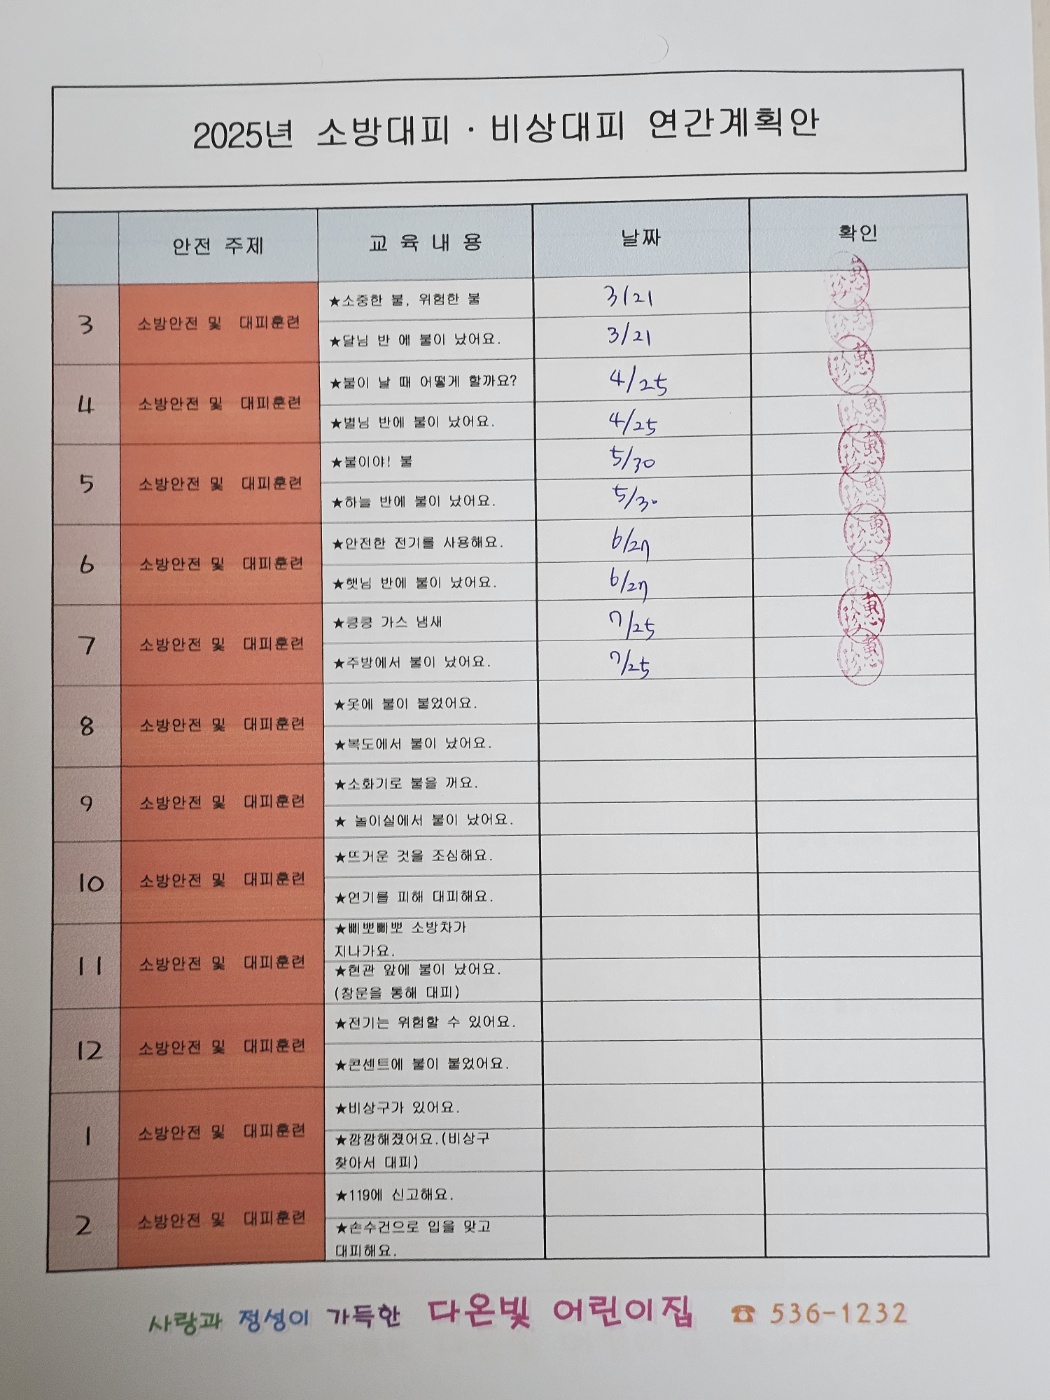 2025년 소방대피 · 비상대피 연간계획안
안전 주제 교 육 내 용 날짜 확인
3 소방안전 및 대피훈련
★소중한 불, 위험한 불 3/21
★달님 반 에 불이 났어요. 3/21
4 소방안전 및 대피훈련
★불이 날 때 어떻게 할까요? 4/25
★별님 반에 불이 났어요. 4/25
5 소방안전 및 대피훈련
★불이야! 불 5/30
★하늘 반에 불이 났어요. 5/30
6 소방안전 및 대피훈련
★안전한 전기를 사용해요. 6/27
★햇님 반에 불이 났어요. 6/27
7 소방안전 및 대피훈련
★킁킁 가스 냄새 7/25
★주방에서 불이 났어요. 7/25
8 소방안전 및 대피훈련
★옷에 불이 붙었어요.
★복도에서 불이 났어요.
9 소방안전 및 대피훈련
★소화기로 불을 꺼요.
★ 놀이실에서 불이 났어요.
10 소방안전 및 대피훈련
★뜨거운 것을 조심해요.
★연기를 피해 대피해요.
11 소방안전 및 대피훈련
★삐뽀삐뽀 소방차가
지나가요.
★현관 앞에 불이 났어요.
(창문을 통해 대피)
12 소방안전 및 대피훈련
★전기는 위험할 수 있어요.
★콘센트에 불이 붙었어요.
1 소방안전 및 대피훈련
★비상구가 있어요.
★깜깜해졌어요.(비상구
찾아서 대피)
2 소방안전 및 대피훈련
★119에 신고해요.
★손수건으로 입을 맞고
대피해요.
사랑과 정성이 가득한 다온빛 어린이집 ☎ 536-1232